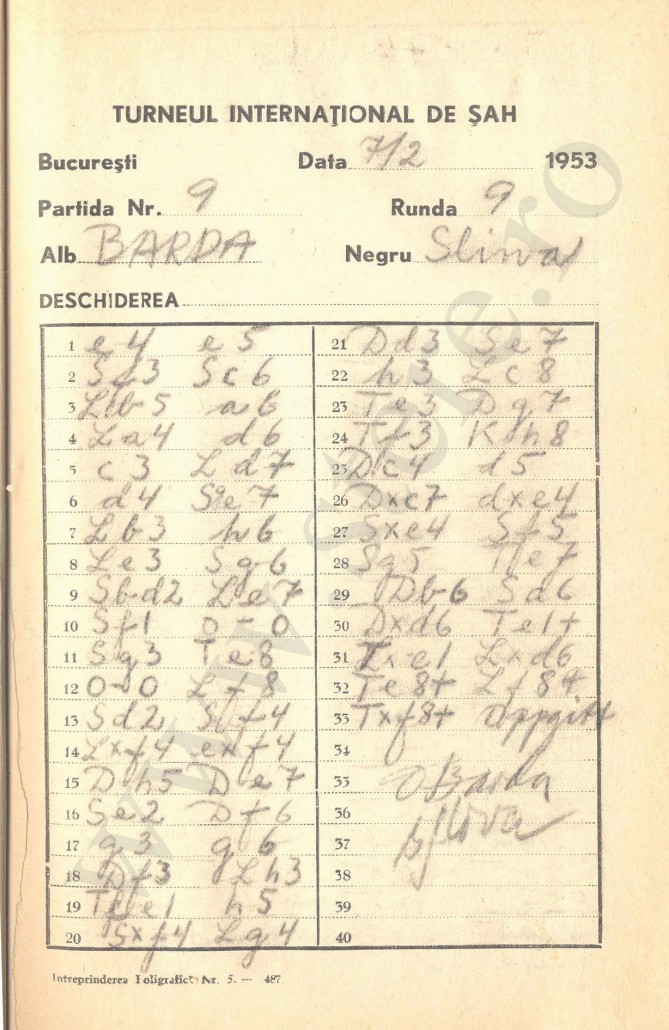 TURNEUL INTERNAȚIONAL DE ȘAH
București Data 7/2 1953
Partida Nr. 9 Runda 9
Alb BARDA Negru Sliwa
DESCHIDEREA
1 e4 e5
2 Sf3 Sc6
3 Lb5 a6
4 La4 d6
5 c3 Ld7
6 d4 Sge7
7 Lb3 h6
8 Le3 Sg6
9 Sbd2 Le7
10 Sf1 0-0
11 Sg3 Te8
12 0-0 Lf8
13 Sd2 Sf4
14 Lxf4 exf4
15 Dh5 De7
16 Se2 Df6
17 g3 g6
18 Df3 Lh3
19 Tfe1 h5
20 Sxf4 Lg4
21 Dd3 Se7
22 h3 Lc8
23 Te3 Dg7
24 Tf3 Kh8
25 Dc4 d5
26 Dxc7 dxe4
27 Sxe4 Sf5
28 Sg5 Te7
29 Db6 Sd6
30 Dxd6 Te1+
31 Txe1 Lxd6
32 Te8+ Lf8+
33 Txf8+ oppgitt
34
35 OBarda
36
37
38
39
40
Intreprinderea Poligrafică Nr. 5. — 487
www.stere.ro